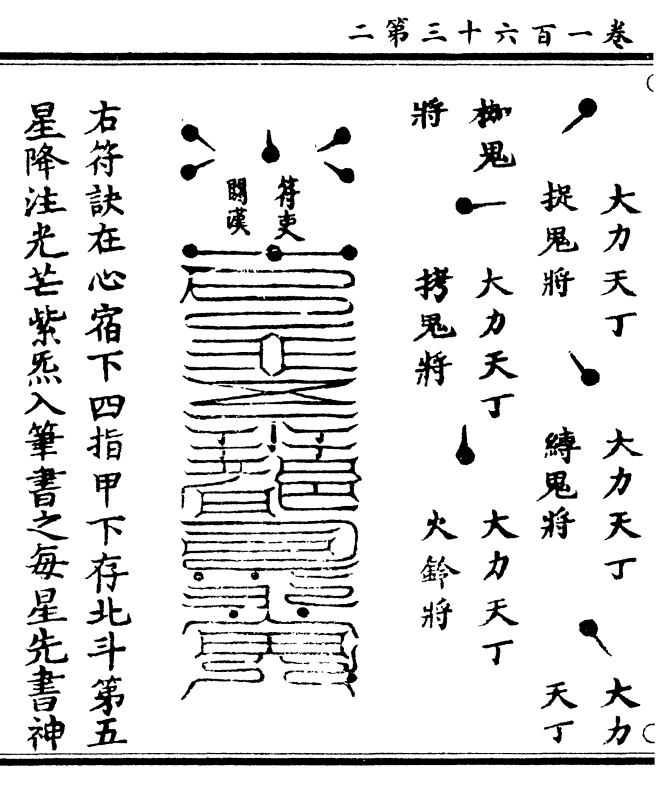 卷一百六十三第二
大力天丁
捉鬼將
大力天丁
縛鬼將
大力
天丁
枷鬼
將
大力天丁
拷鬼將
大力天丁
火鈴將
符吏
關漢
右符訣在心宿下四指甲下存北斗第五
星降注光芒紫炁入筆書之每星先書神